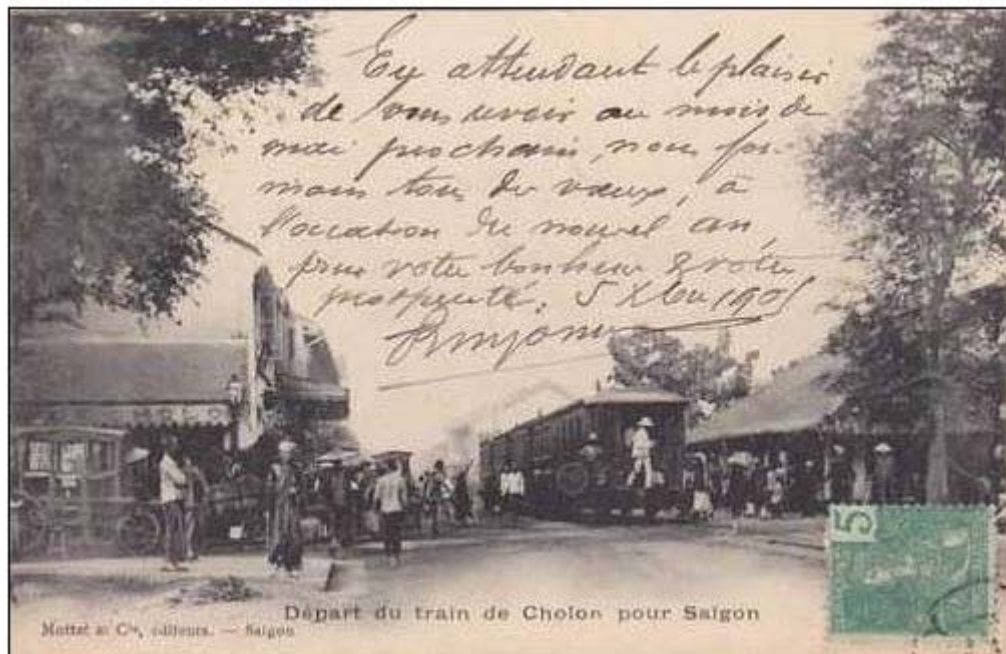 En attendant le plaisir
de vous revoir au mois de
mai prochain, nous for-
mons tous des vœux, à
l'occasion du nouvel an,
pour votre bonheur & votre
prospérité. 5 Xbre 1905
5
Départ du train de Cholon pour Saïgon
Mottet & Cie, editeurs. — Saigon